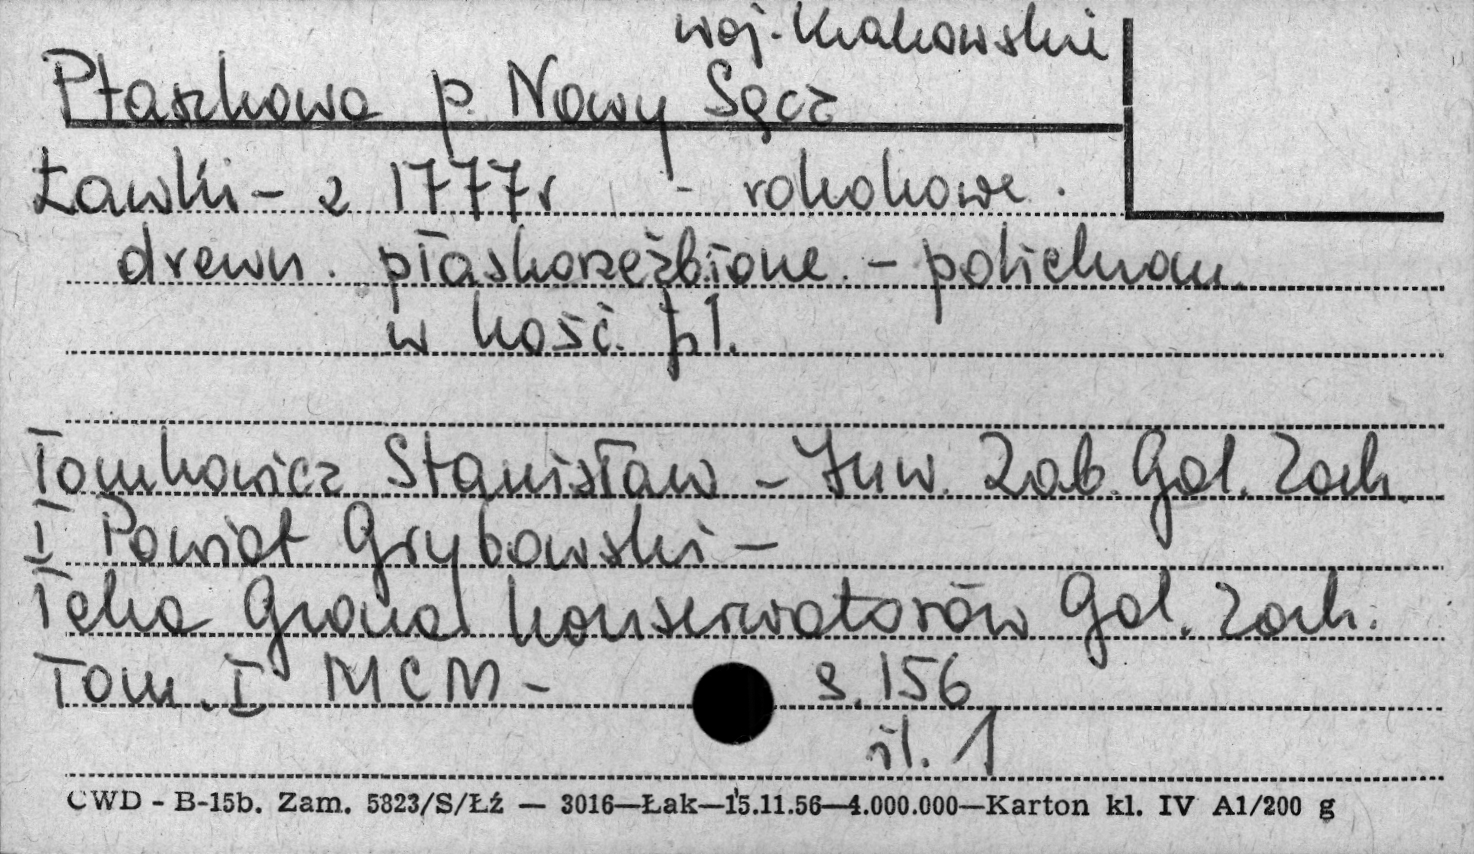 woj. Krakowskie
Ptaszkowa p. Nowy Sącz
Ławki - z 1777r - rokokowe.
drewn. płaskorzeźbione. - polichrom.
w kość. pl.
Tomkowicz Stanisław - Inw. Zab. Gal. Zach.
I Powiat Grybowski -
Teka Grona konserwatorów Gal. Zach.
Tom. I MCM - s. 156
il. 1
CWD - B-15b. Zam. 5823/S/Łź — 3016—Łak—15.11.56—4.000.000—Karton kl. IV A1/200 g